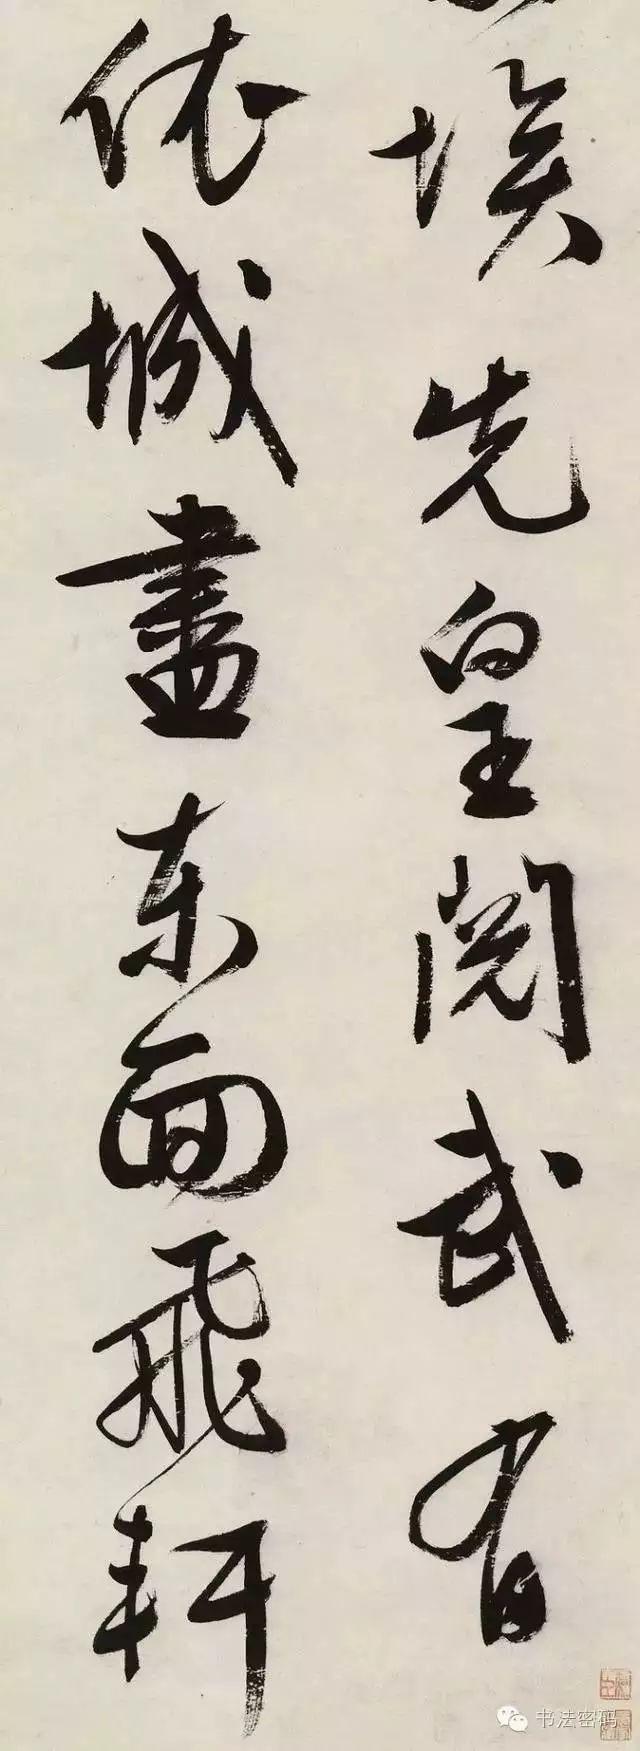 埃先皇閱武有
依城盡東面飛軒
书法密码